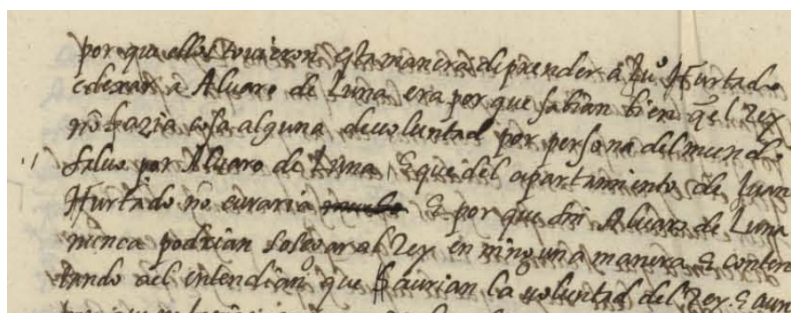 por que ellos touieron esta manera de prender a Juº Hurtado
e dexar a Aluaro de Luna era por que sabian bien q̃ el Rey
no hazia cosa alguna de voluntad por persona del mundo
saluo por Aluaro de Luna, e que del apartamiento de Juan
Hurtado no curaria e por que sin Aluaro de Luna
nunca podrian sosegar al Rey en ninguna manera e conten
tando a el entendian que aurian la voluntad del Rey. e aun